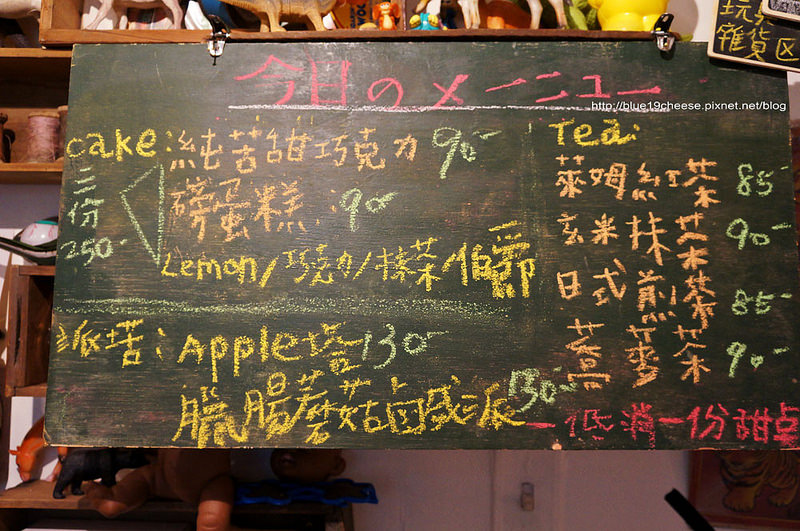 玩
雜貨区
今日のメーニュー
http://blue19cheese.pixnet.net/blog
cake:純苦甜巧克力 90-
三份250-
磅蛋糕:90-
Lemon/巧克力/抹茶 伯爵
派塔:Apple塔130-
臘腸蘑菇鹵鹹派 130-
Tea:
萊姆紅茶 85-
玄米抹茶 90-
日式煎茶 85-
蕎麥茶 90-
低消一份甜点